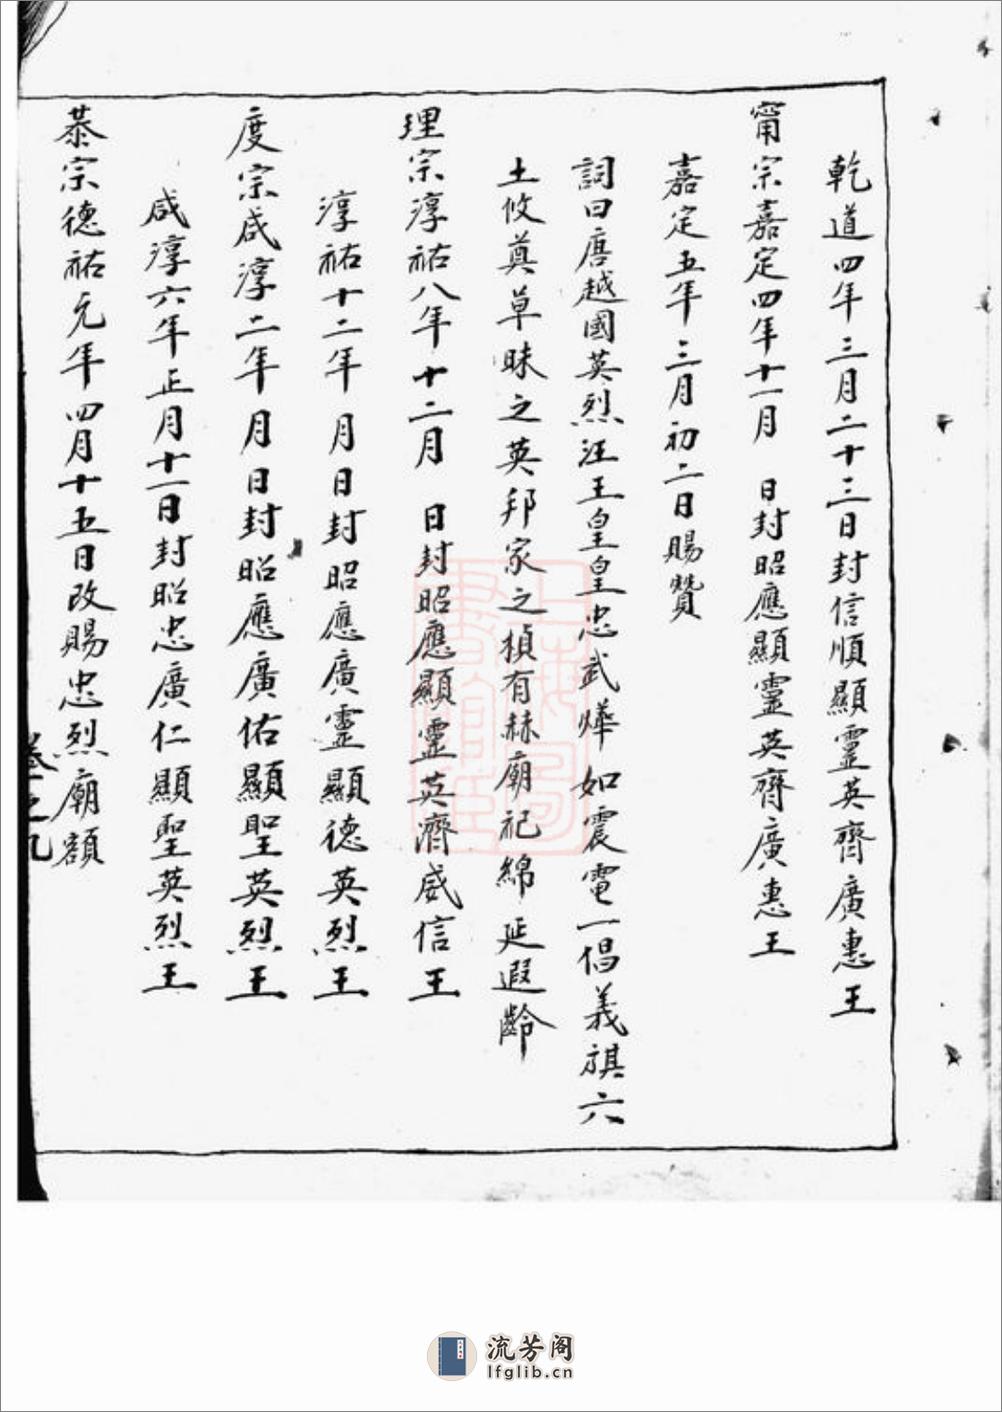 乾道四年三月二十三日封信順顯靈英齊廣惠王
甯宗嘉定四年十一月 日封昭應顯靈英齊廣惠王
嘉定五年三月初二日賜贊
詞曰唐越國英烈汪王皇皇忠武燁如震電一倡義旗六
土攸奠草昧之英邦家之楨有赫廟祀綿延遐齡
理宗淳祐八年十二月 日封昭應顯靈英濟威信王
淳祐十二年 月日封昭應廣靈顯德英烈王
度宗咸淳二年 月日封昭應廣佑顯聖英烈王
咸淳六年正月十一日封昭忠廣仁顯聖英烈王
恭宗德祐元年四月十五日改賜忠烈廟額
卷之九
流芳阁
lfglib.cn